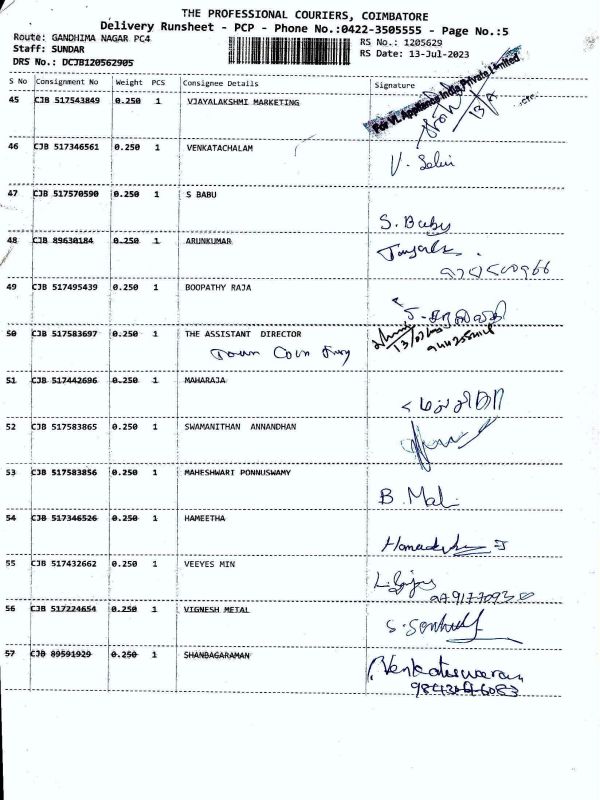 THE PROFESSIONAL COURIERS, COIMBATORE
Delivery Runsheet - PCP - Phone No.:0422-3505555 - Page No.:5
Route: GANDHIMA NAGAR PC4
RS No.: 1205629
Staff: SUNDAR
RS Date: 13-Jul-2023
DRS No.: DCJB120562905
S No Consignment No Weight PCS Consignee Details Signature
For VL Appliance India Private Limited
45 CJB 517543849 0.250 1 VJAYALAKSHMI MARKETING
46 CJB 517346561 0.250 1 VENKATACHALAM
V. Selvi
47 CJB 517570590 0.250 1 S BABU
S. Babu
48 CJB 89630184 0.250 1 ARUNKUMAR
49 CJB 517495439 0.250 1 BOOPATHY RAJA
50 CJB 517583697 0.250 1 THE ASSISTANT DIRECTOR
Town
51 CJB 517442696 0.250 1 MAHARAJA
52 CJB 517583865 0.250 1 SWAMANITHAN ANNANDHAN
53 CJB 517583856 0.250 1 MAHESHWARI PONNUSWAMY
B. Mali
54 CJB 517346526 0.250 1 HAMEETHA
55 CJB 517432662 0.250 1 VEEYES MIN
56 CJB 517224654 0.250 1 VIGNESH METAL
57 CJB 89591929 0.250 1 SHANBAGARAMAN
Venkateswaran